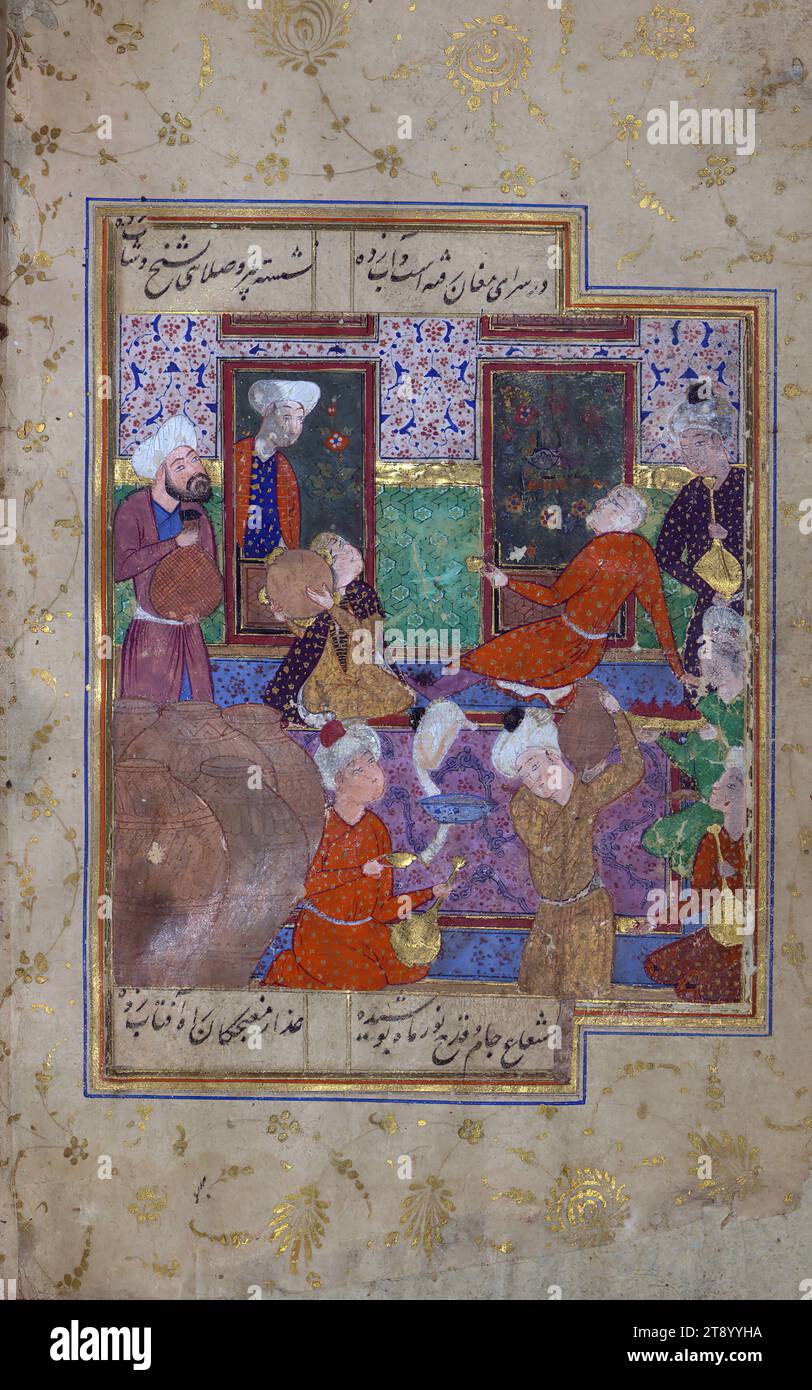 در سرای مغان رفته است و آب زده نشسته پیر و صلای بشیخ و شاب زده
شعاع جام و قدح نور ماه پوشیده عذار مغبچگان راه آفتاب زده
alamy
alamy
alamy
a
a
a
alamy
Image ID: 2T8YYHA
www.alamy.com